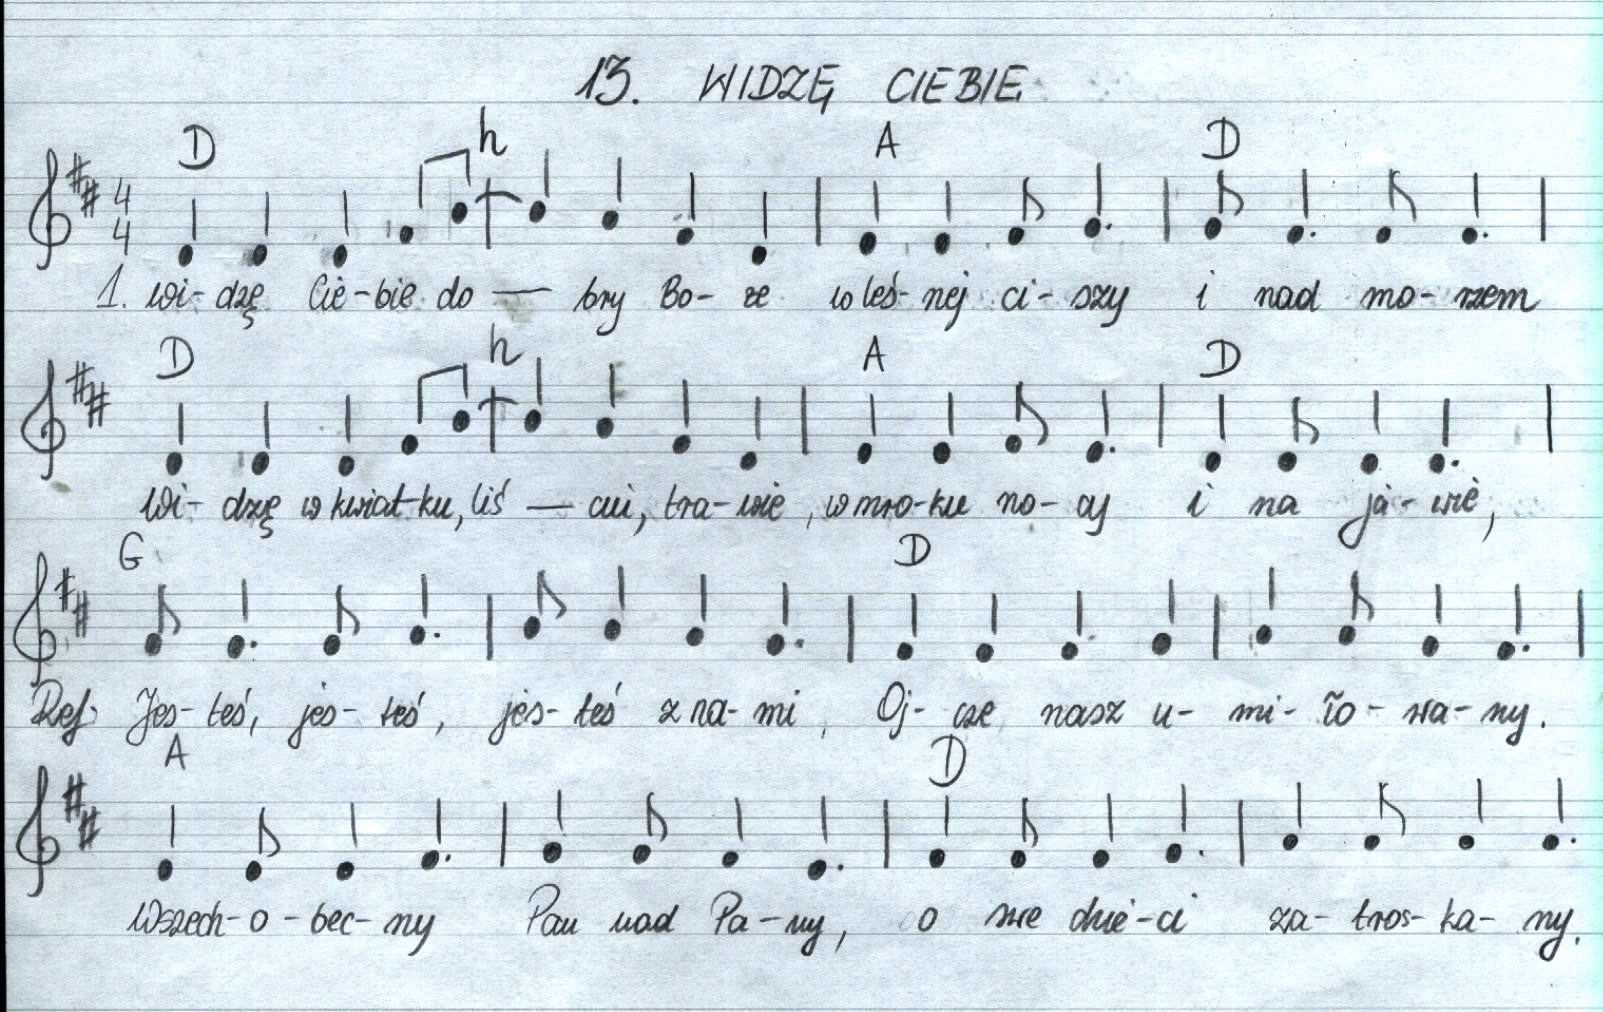 13. WIDZĘ CIEBIE
D h A D
4
4
1. Wi- dzę Cie-bie do — bry Bo- że w leś- nej ci- szy i nad mo- rzem
D h A D
Wi- dzę w kwiat-ku, liś — ciu, tra- wie, w mro-ku no- cy i na ja- wie,
G D
Ref. Jes- teś, jes- teś, jes- teś z na- mi, Oj- cze nasz u- mi- ło- wa- ny.
A D
Wszech-o-bec- ny Pan nad Pa-ny, o swe dzie-ci za- tros- ka- ny.